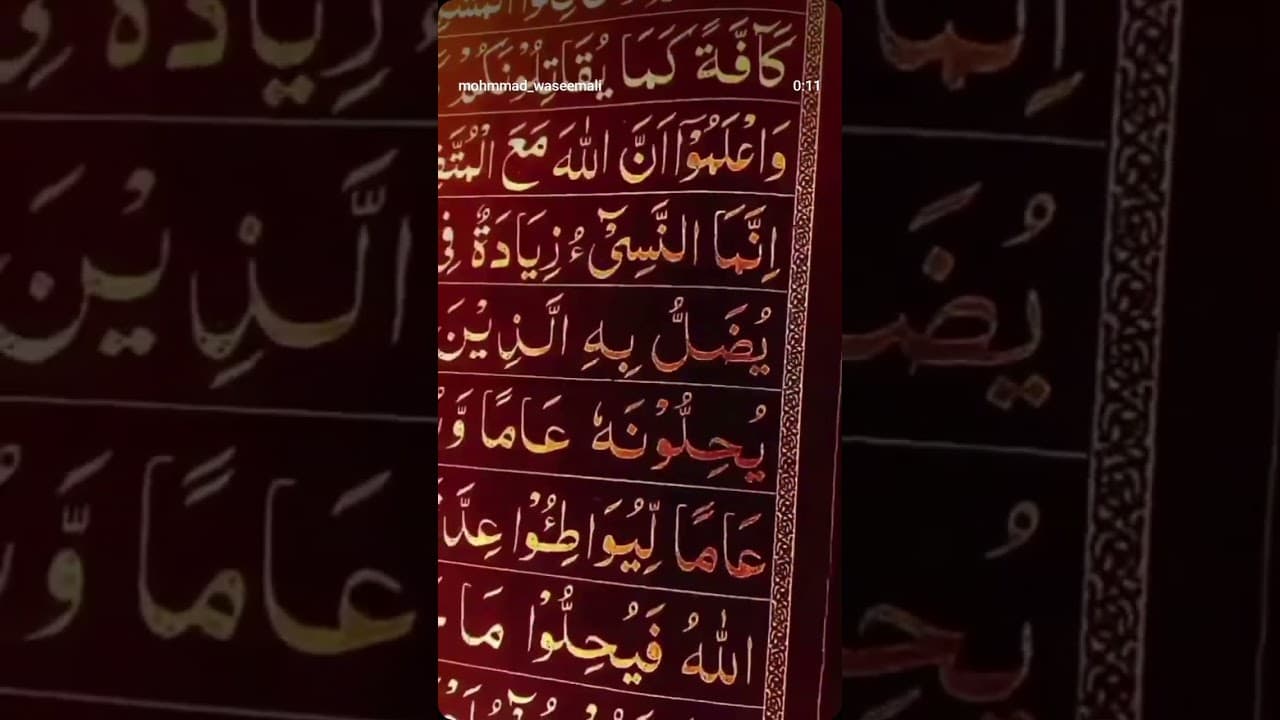 mohmmad_waseemali
0:11
كَآفَّةً كَمَا يُقَاتِلُوْنَكُمْ
وَاعْلَمُوْۤا اَنَّ اللّٰهَ مَعَ
اِنَّمَا النَّسِیْٓءُ زِيَادَةٌ فِی
يُضَلُّ بِهِ الَّذِيْنَ
يُحِلُّوْنَهٗ عَامًا
عَامًا لِّيُوَاطِئُوْا
اللّٰهُ فَيُحِلُّوْا مَا